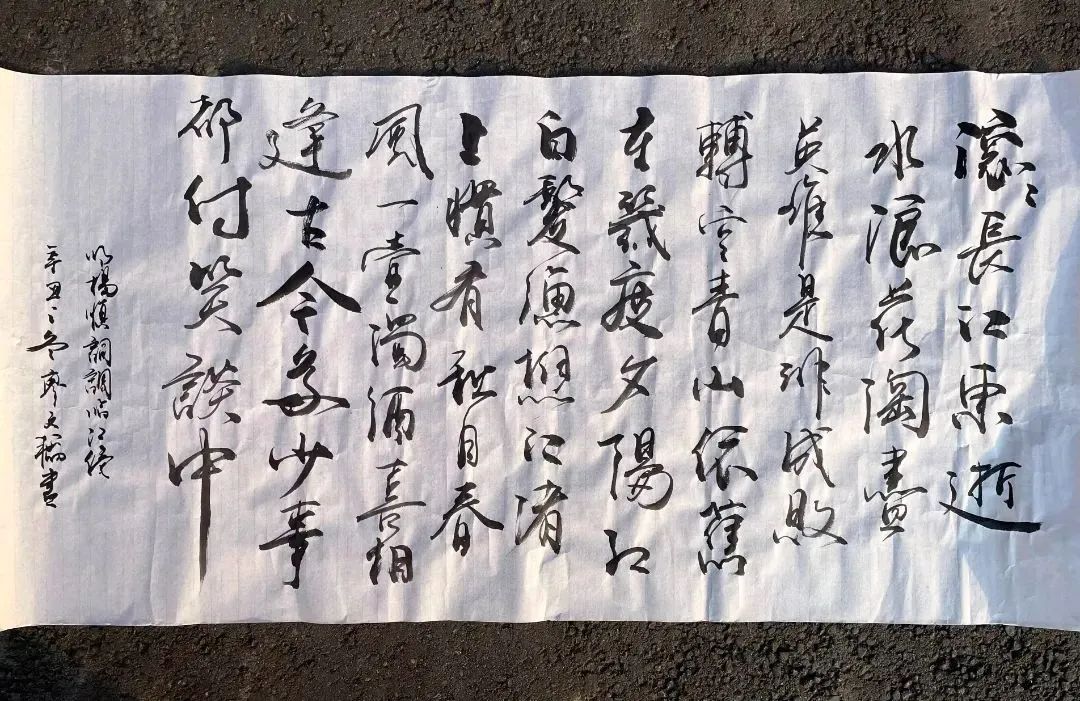 滚〻長江東逝
水浪花淘盡
英雄是非成敗
轉空青山依舊
在幾度夕陽紅
白髮漁樵江渚
上慣看秋月春
風一壺濁酒喜相
逢古今多少事
都付笑談中
明楊慎詞調臨江僊
辛丑之冬廖文書